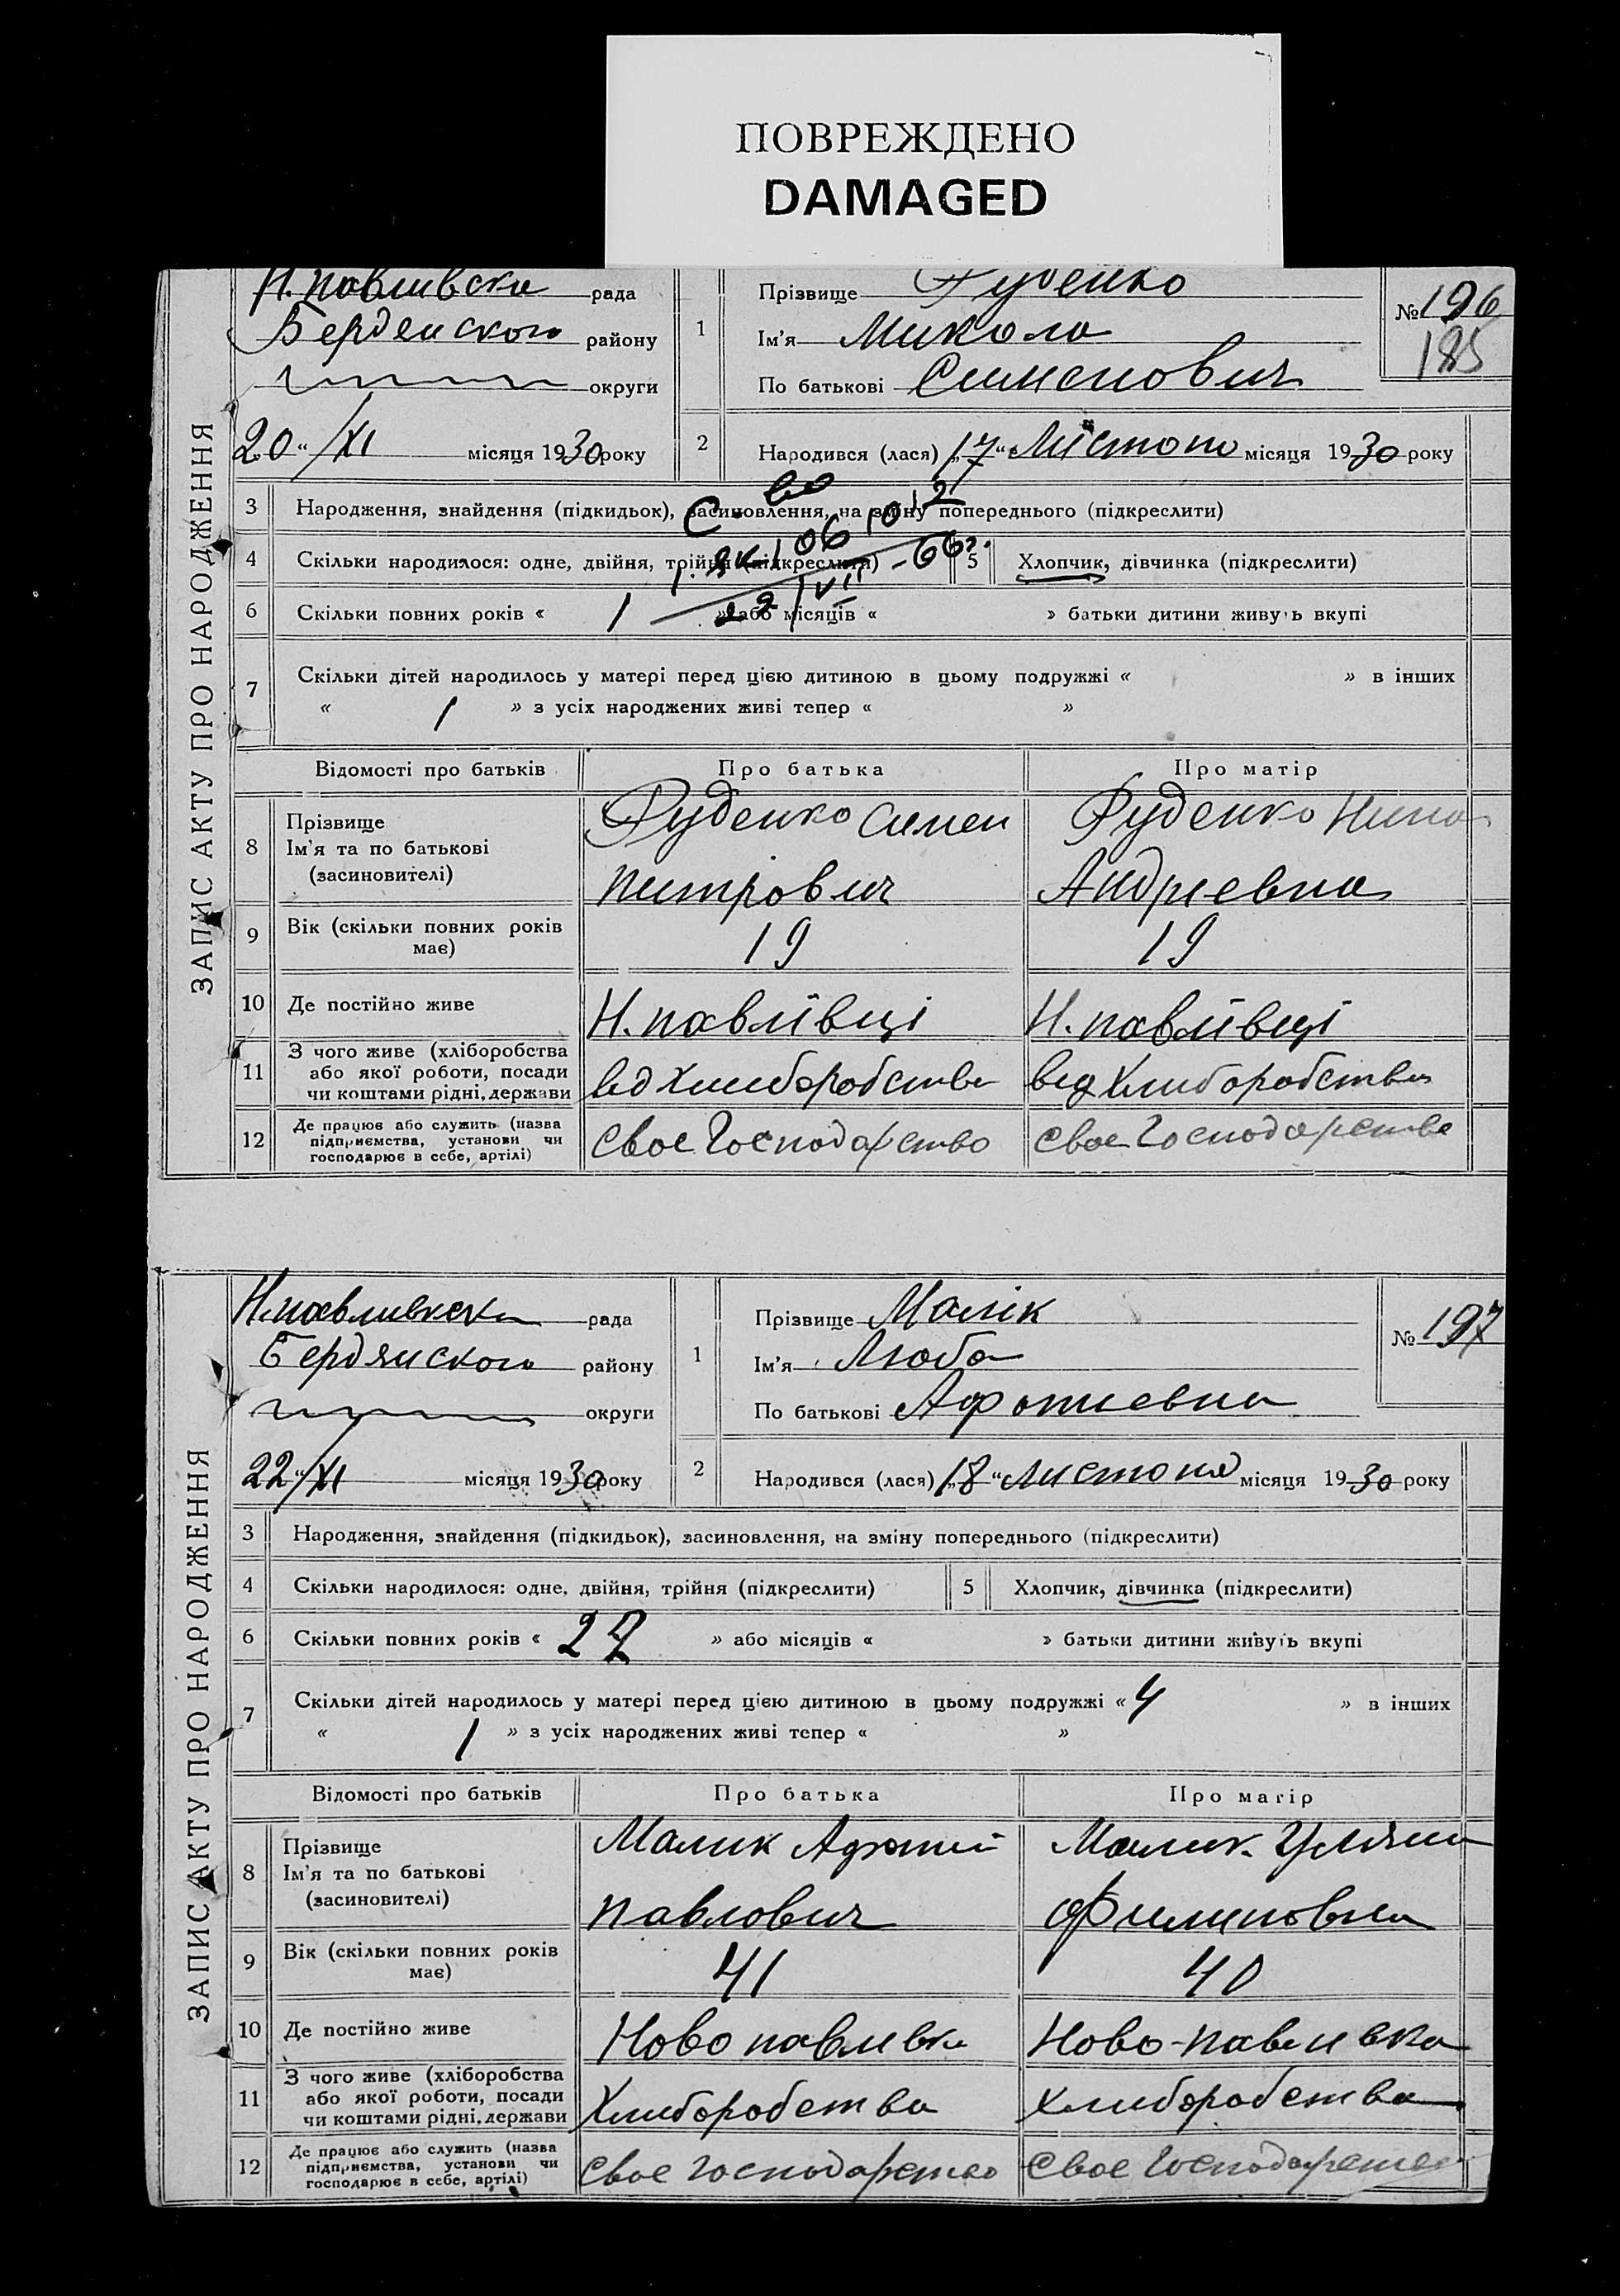 ПОВРЕЖДЕНО
DAMAGED
ЗАПИС АКТУ ПРО НАРОДЖЕННЯ
Н. павливска рада
Бердянского району
округи
20 " /XI місяця 1930 року
1
Прізвище Руденко
Ім'я Микола
По батькові Сименович
№ 196
185
2 Народився (лася) „17 " Листопа місяця 1930 року
3 Народження, знайдення (підкидьок), засиновлення, на зміну попереднього (підкреслити)
4 Скільки народилося: одне, двійня, трійня (підкреслити) 5 Хлопчик, дівчинка (підкреслити)
С-во
1 ЯК 106 1012
22/VII -66г.
6 Скільки повних років « 1 » або місяців « » батьки дитини живуть вкупі
7 Скільки дітей народилось у матері перед цією дитиною в цьому подружжі « » в інших
« 1 » з усіх народжених живі тепер « »
Відомості про батьків Про батька Про матір
8 Прізвище
Ім'я та по батькові
(засиновителі)
Руденко Симен
Питрович
Руденко Нина
Андриевна
9 Вік (скільки повних років має) 19 19
10 Де постійно живе Н. павлівці Н. павлівці
11 З чого живе (хліборобства або якої роботи, посади чи коштами рідні, держави вед хлиборобства вед хлиборобства
12 Де працює або служить (назва підприємства, установи чи господарює в себе, артілі) свое Господарство свое Господарства
ЗАПИС АКТУ ПРО НАРОДЖЕННЯ
Н.павливска рада
Бердянского району
округи
22 " /XI місяця 1930 року
1
Прізвище Малік
Ім'я Люба
По батькові Афониевна
№ 197
2 Народився (лася) „18 " листопад місяця 1930 року
3 Народження, знайдення (підкидьок), засиновлення, на зміну попереднього (підкреслити)
4 Скільки народилося: одне, двійня, трійня (підкреслити) 5 Хлопчик, дівчинка (підкреслити)
6 Скільки повних років « 22 » або місяців « » батьки дитини живуть вкупі
7 Скільки дітей народилось у матері перед цією дитиною в цьому подружжі « 4 » в інших
« 1 » з усіх народжених живі тепер « »
Відомості про батьків Про батька Про матір
8 Прізвище
Ім'я та по батькові
(засиновителі)
Малик Афоний
павлович
Малик Уляна
Филиповна
9 Вік (скільки повних років має) 41 40
10 Де постійно живе Ново павливка Ново-павливка
11 З чого живе (хліборобства або якої роботи, посади чи коштами рідні, держави Хлиборобства хлиборобства
12 Де працює або служить (назва підприємства, установи чи господарює в себе, артілі) свое господарство свое господарство